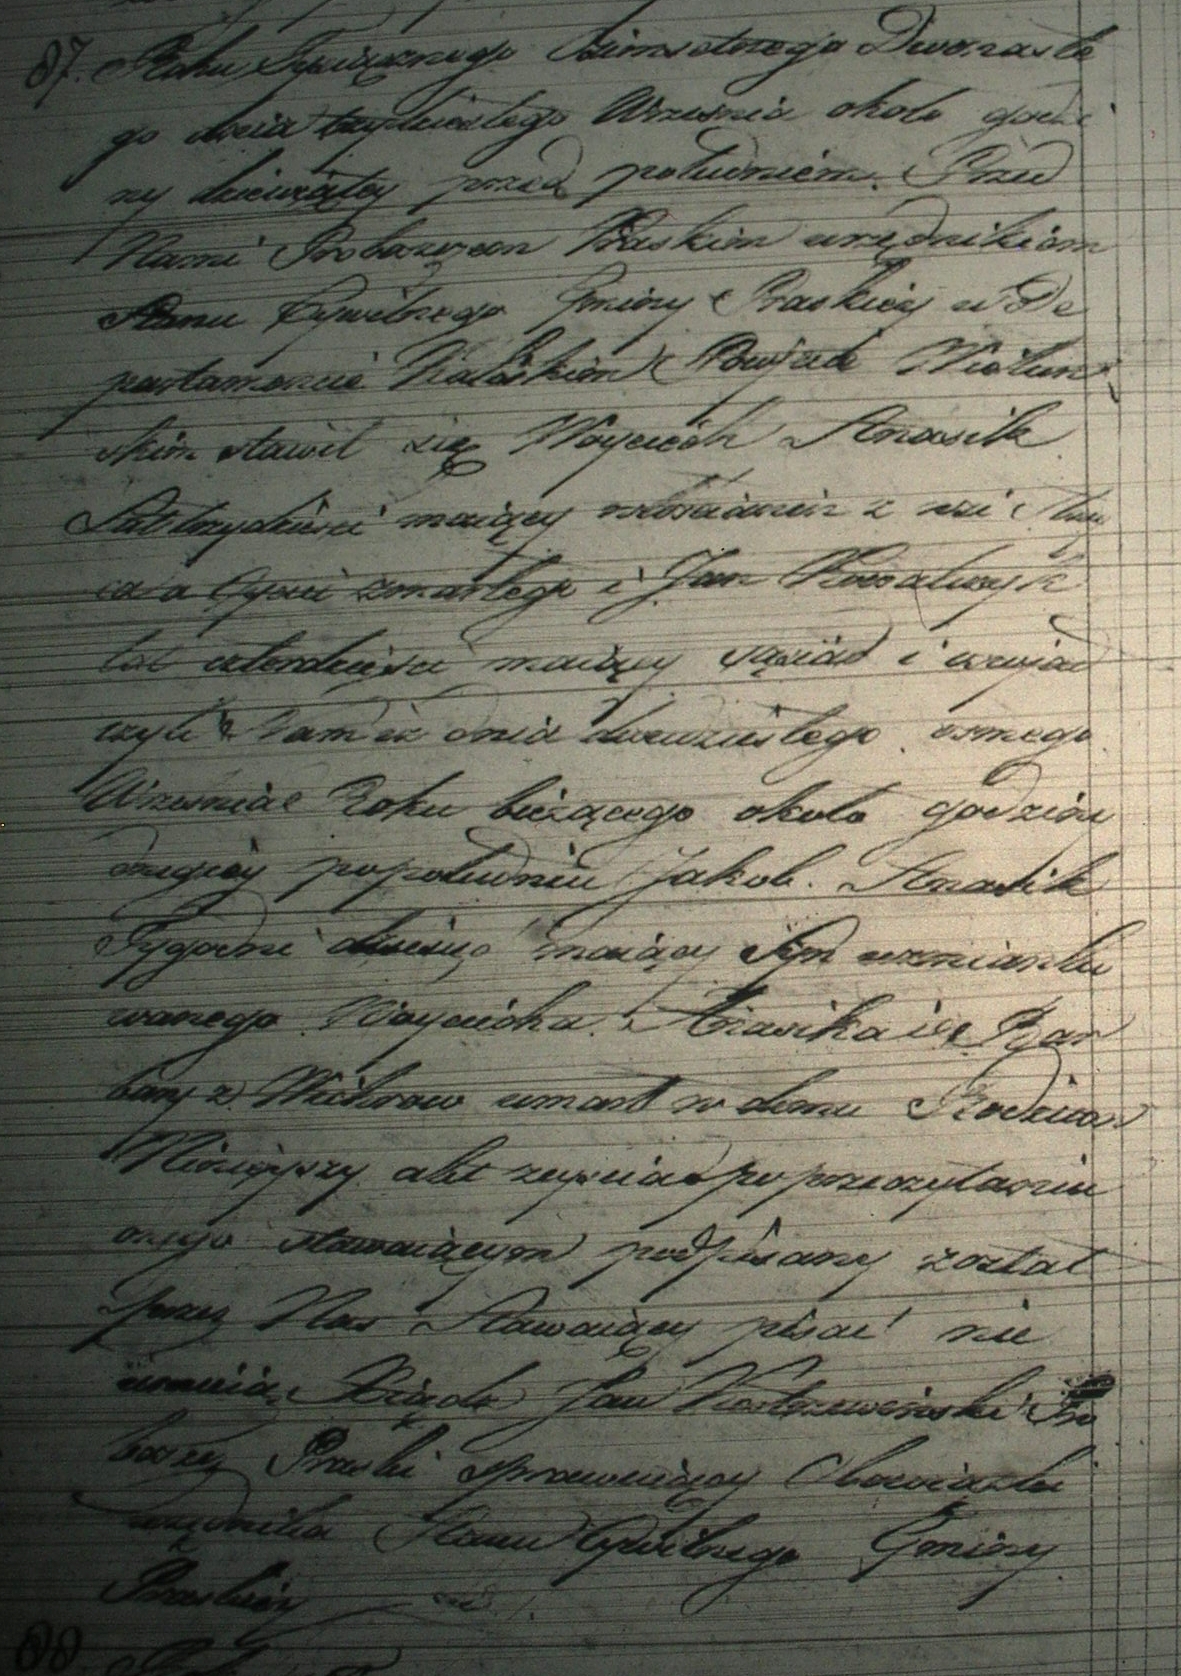 87. Roku Tysiącznego Osimsetnego Dwonaste
go dnia trzydziestego Września około godzi
ny dziewiątey przed południem. Przed
Nami Proboszczem Praskim urzędnikiem
Stanu Cywilnego Gminy Praskiey w De
partamencie Kaliskim Powiecie Wieluń
skim stawił się Woyciech Stasik
Lat trzydzieści maiący włościanin z wsi
Oyciec zmarłego i Jan Kowalczyk
lat czterdzieści maiący sąsiad i oswiad
czyli Nam iż dnia dwudziestego osmego
Września Roku bieżącego około godzin
drugiey popołudniu Jakob Stasik
Tygodni maiący Syn wzmianko
wanego Woyciecha Stasika i Bar
bary z umarł w domu Rodziców
Ninieyszy akt zeyścia po przeczytaniu
onego stawaiącym podpisany został
przez Nas Stawaiący pisać nie
umieią. Xiądz Jan Pro
boszcz Praski sprawuiący Obowiązki
urzędnika Stanu Cywilnego Gminy
Praskiey
88